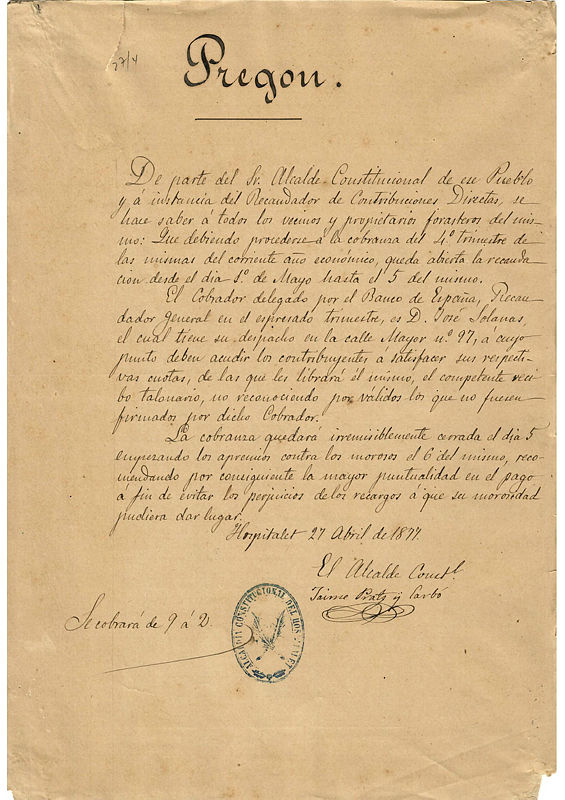 27/4
Pregon.
De parte del Sr. Alcalde Constitucional de ese Pueblo
y á instancia del Recaudador de Contribuciones Directas, se
hace saber á todos los vecinos y propietarios forasteros del mis-
mo: Que debiendo procederse á la cobranza del 4.º trimestre de
las mismas del corriente año económico, queda abierta la recauda-
cion desde el dia 1.º de Mayo hasta el 5 del mismo.
El Cobrador delegado por el Banco de España, Recau-
dador General en el espresado trimestre, es D. José Solanas,
el cual tiene su despacho en la calle Mayor n.º 97, á cuyo
punto deben acudir los contribuyentes, á satisfacer sus respecti-
vas cuotas, de las que les librará él mismo, el competente reci-
bo talonario, no reconociendo por validos los que no fuesen
firmados por dicho Cobrador.
La cobranza quedará irremisiblemente cerrada el dia 5
empezando los apremios contra los morosos el 6 del mismo, reco-
mendando por consiguiente la mayor puntualidad en el pago
á fin de evitar los perjuicios de los recargos á que su morosidad
pudiera dar lugar.
Hospitalet 27 Abril de 1877.
El Alcalde Constl.
Jaime Prats y Carbó
Se cobrará de 9 á 2.
ALCALDIA CONSTITUCIONAL DEL